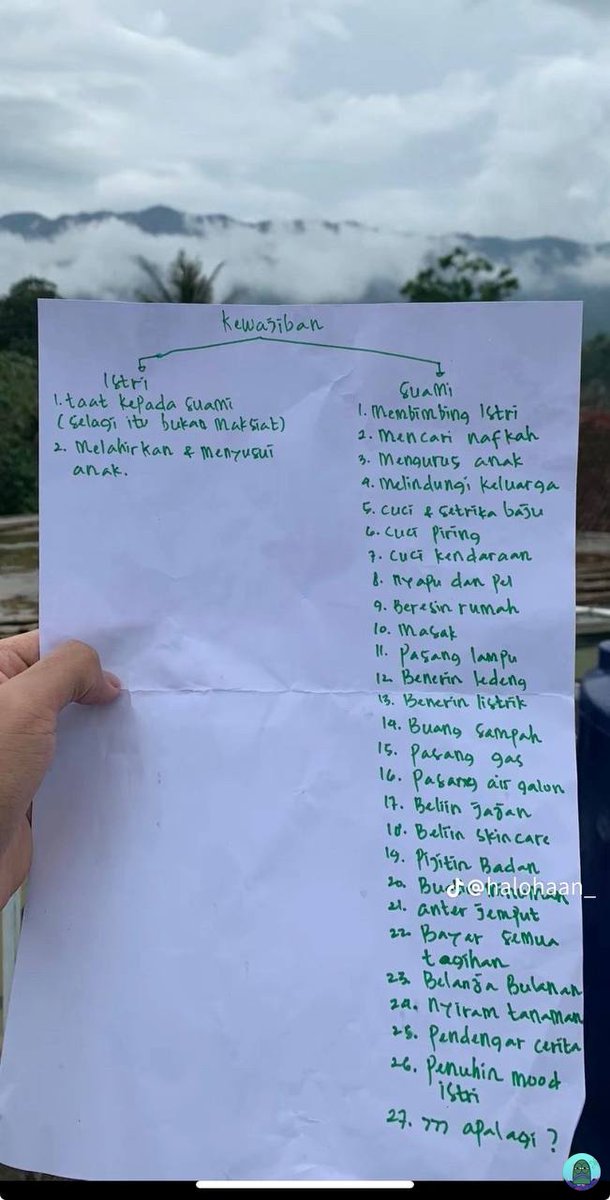 Kewajiban
Istri
1. taat kepada suami
(selagi itu bukan maksiat)
2. Melahirkan & menyusui
anak.
Suami
1. Membimbing Istri
2. Mencari nafkah
3. Mengurus anak
4. Melindungi keluarga
5. Cuci & setrika baju
6. Cuci Piring
7. Cuci kendaraan
8. nyapu dan pel
9. Beresin rumah
10. Masak
11. Pasang lampu
12. Benerin ledeng
13. Benerin listrik
14. Buang sampah
15. Pasang gas
16. Pasang air galon
17. Beliin jajan
18. Beliin skincare
19. Pijitin Badan
20.
@halohaan_
21. anter jemput
22. Bayar semua
tagihan
23. Belanja Bulanan
24. nyiram tanaman
25. Pendengar cerita
26. Penuhin mood
istri
27. apalagi ?